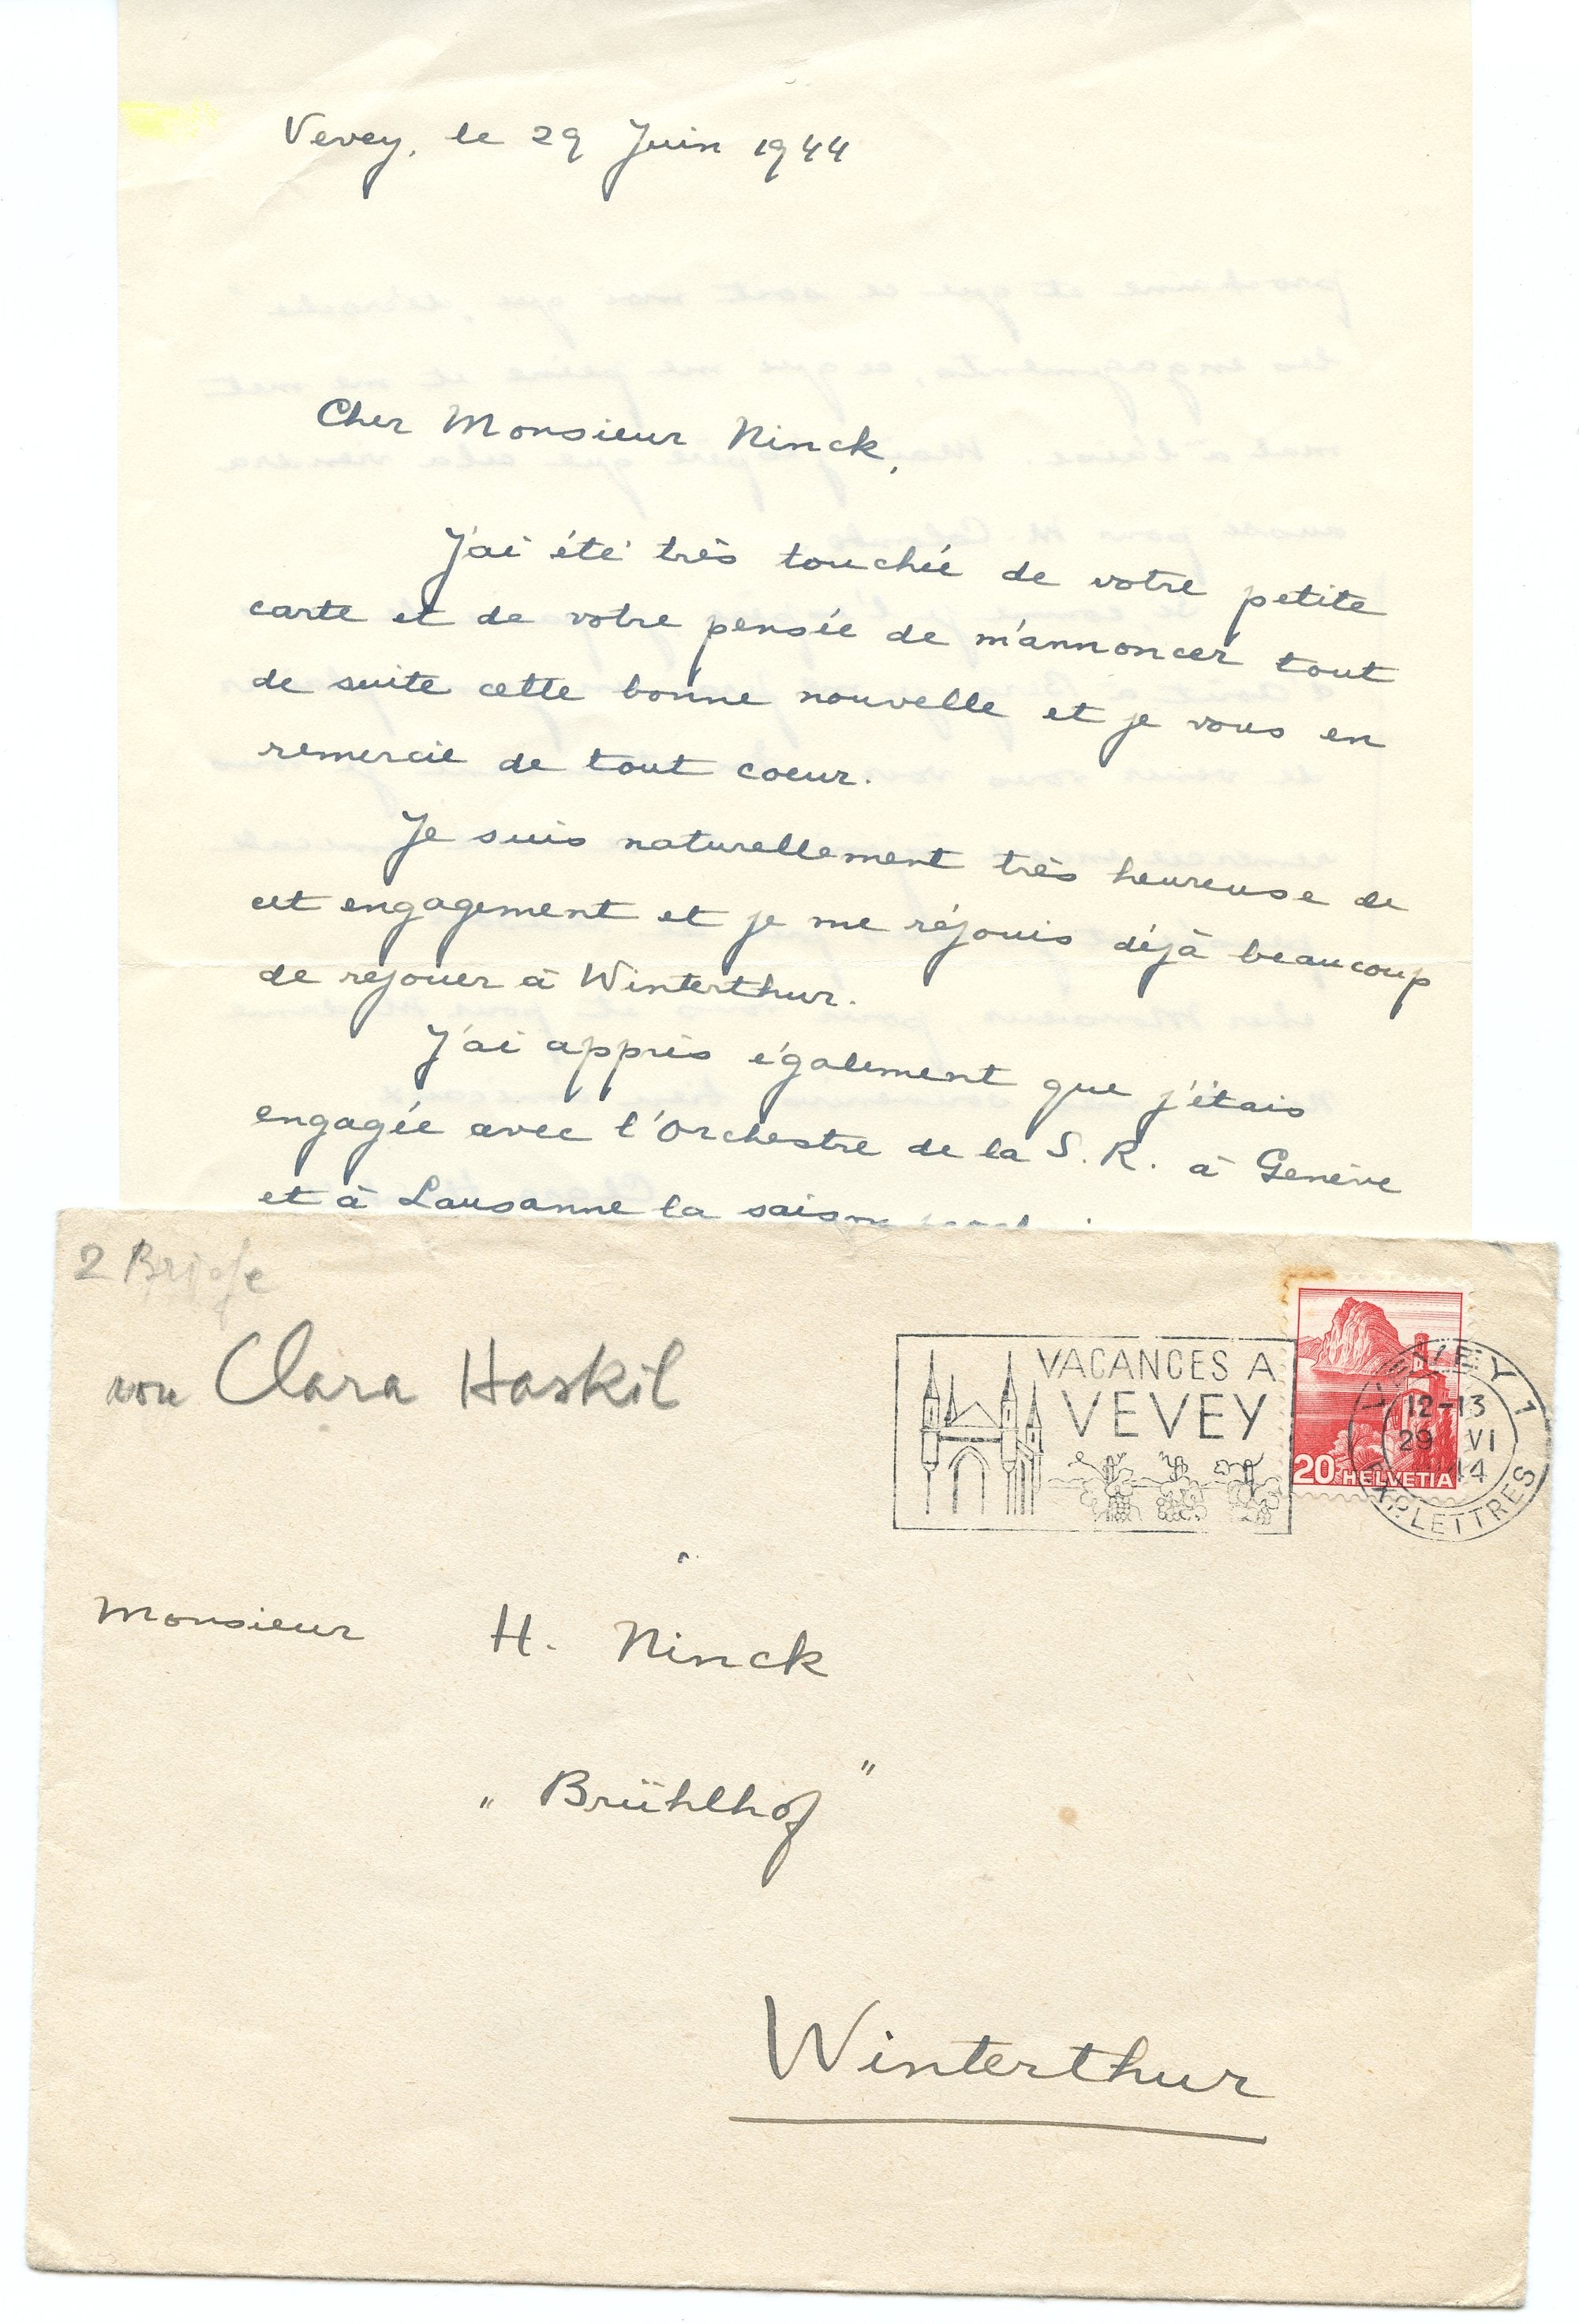 Vevey, le 29 Juin 1944
Cher Monsieur Ninck,
J'ai été très touchée de votre petite
carte et de votre pensée de m'annoncer tout
de suite cette bonne nouvelle et je vous en
remercie de tout coeur.
Je suis naturellement très heureuse de
cet engagement et je me réjouis déjà beaucoup
de rejouer à Winterthur.
J'ai appris également que j'étais
engagée avec l'Orchestre de la S. R. à Genève
et à Lausanne la saison
2 Briefe
von Clara Haskil
VACANCES A
VEVEY
VEVEY 1
12-13
29 VI
44
EXP. LETTRES
20 HELVETIA
Monsieur H. Ninck
„ Brühlhof "
Winterthur